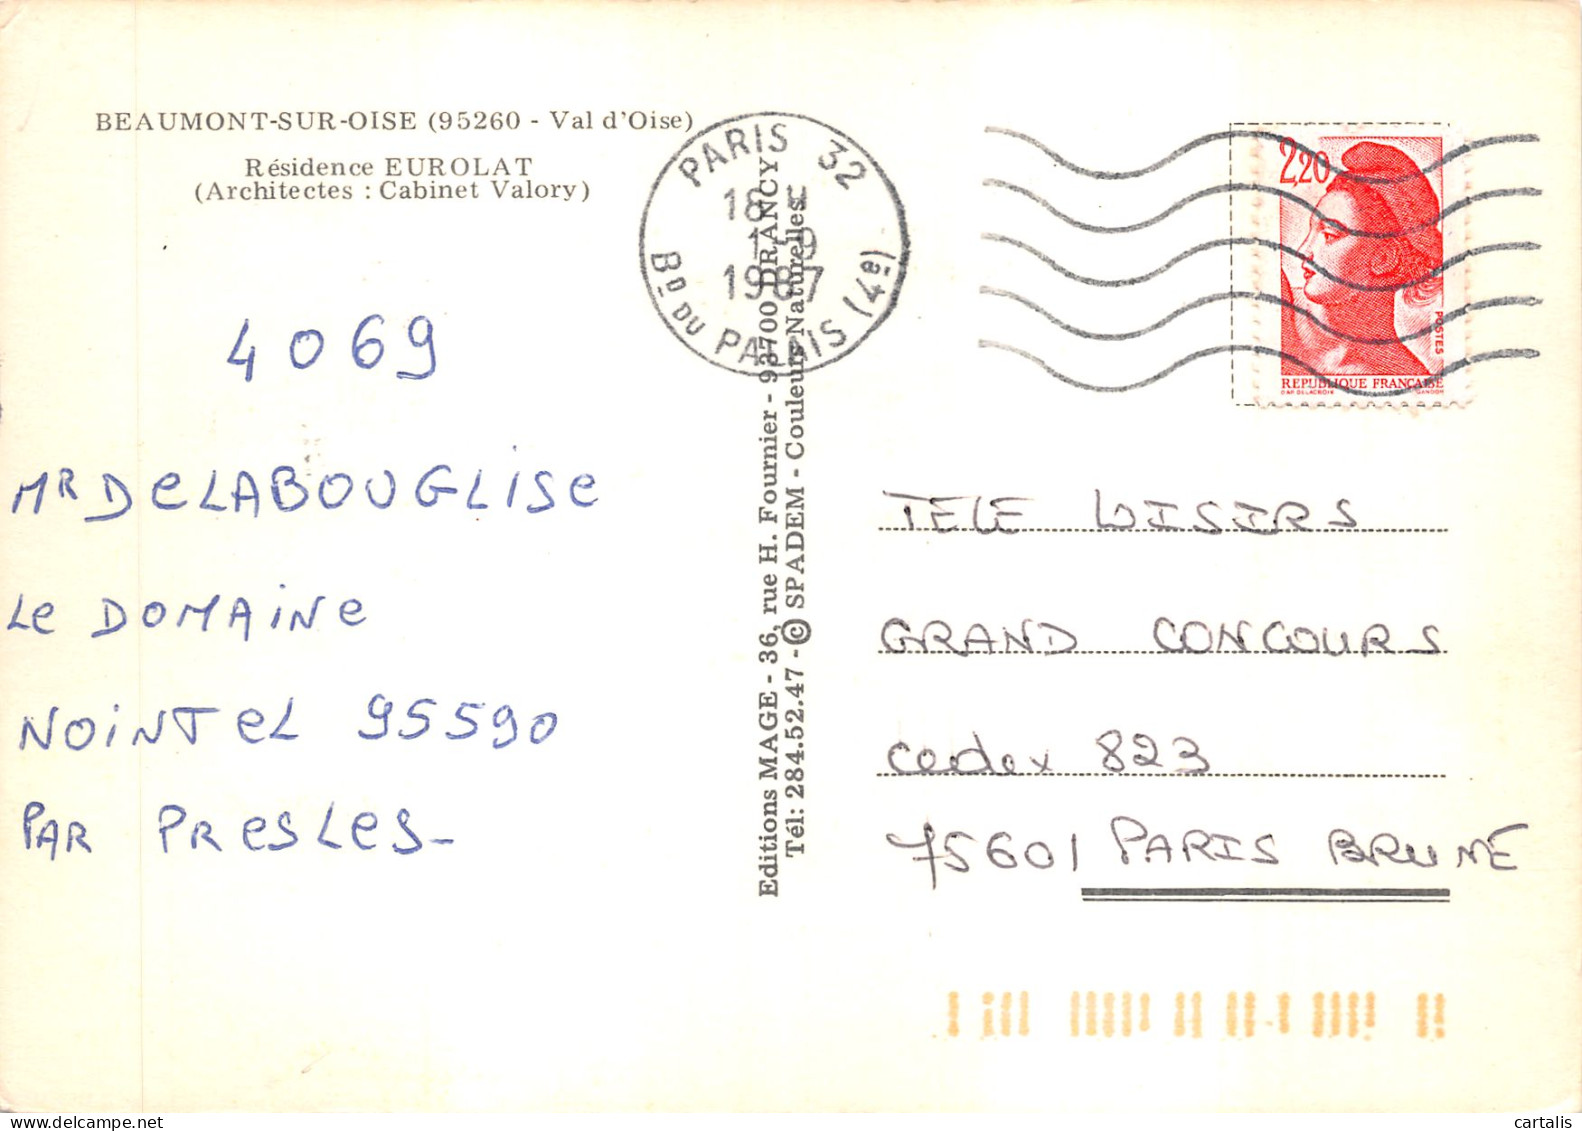 BEAUMONT-SUR-OISE (95260 - Val d'Oise)
Résidence EUROLAT
(Architectes : Cabinet Valory)
4069
MR DeLABOUGLISe
Le DOMAiNe
NOiNTeL 95590
PAR PResLes-
Editions MAGE - 36, rue H. Fournier - 93700 DRANCY
Tél: 284.52.47 - © SPADEM - Couleurs Naturelles
PARIS 32
18
1-9
1987
Bd DU PARIS (14e)
2,20
POSTES
REPUBLIQUE FRANÇAISE
D'AP. DELACROIX GANDON
TELE LOISIRS
GRAND CONCOURS
cedex 823
75601 PARIS BRUNE
cartalis